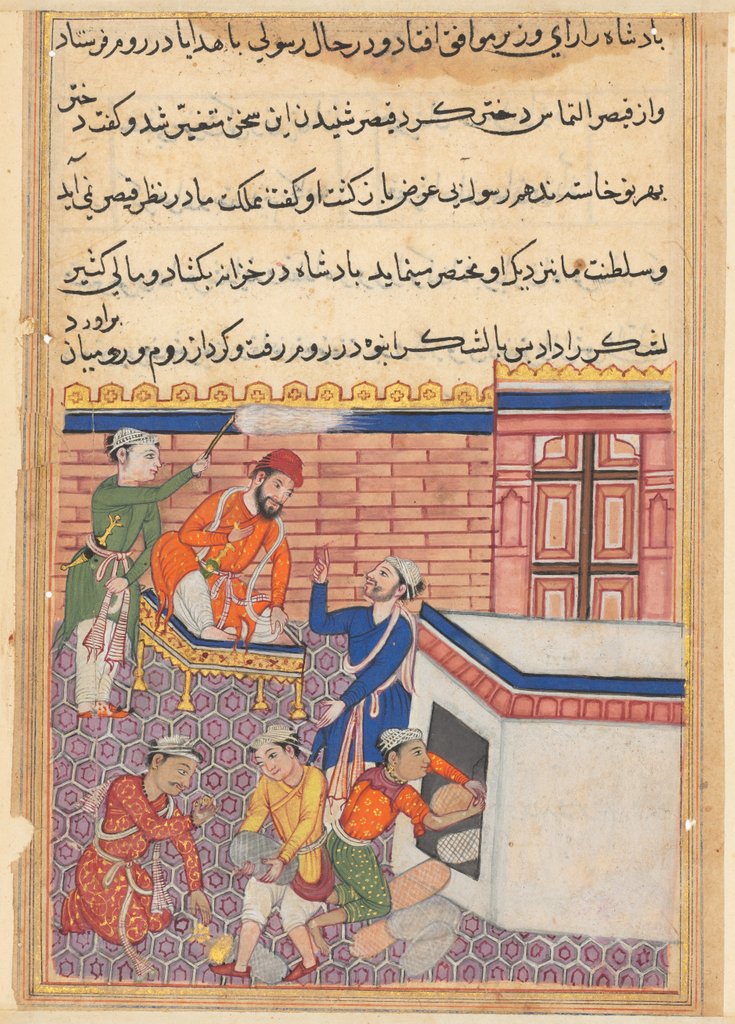 بادشاه را رای وزیر موافق افتاد و در حال رسولی با هدایا در روم فرستاد
و از قیصر التماس دختر کرد قیصر شنیدن این سخن متغیّر شد و کفت دختر
بهر تو خاسته ندهم رسول بی غرض باز کشت او کفت مملکت ما در نظر قیصر نمی آید
و سلطنت ما بنزدیک او مختصر مینماید بادشاه در خزانه بکشاد و مالی کثیر
لشکر را داد پس با لشکر انبوه در روم رفت و کرد از روم و رومیان براورد